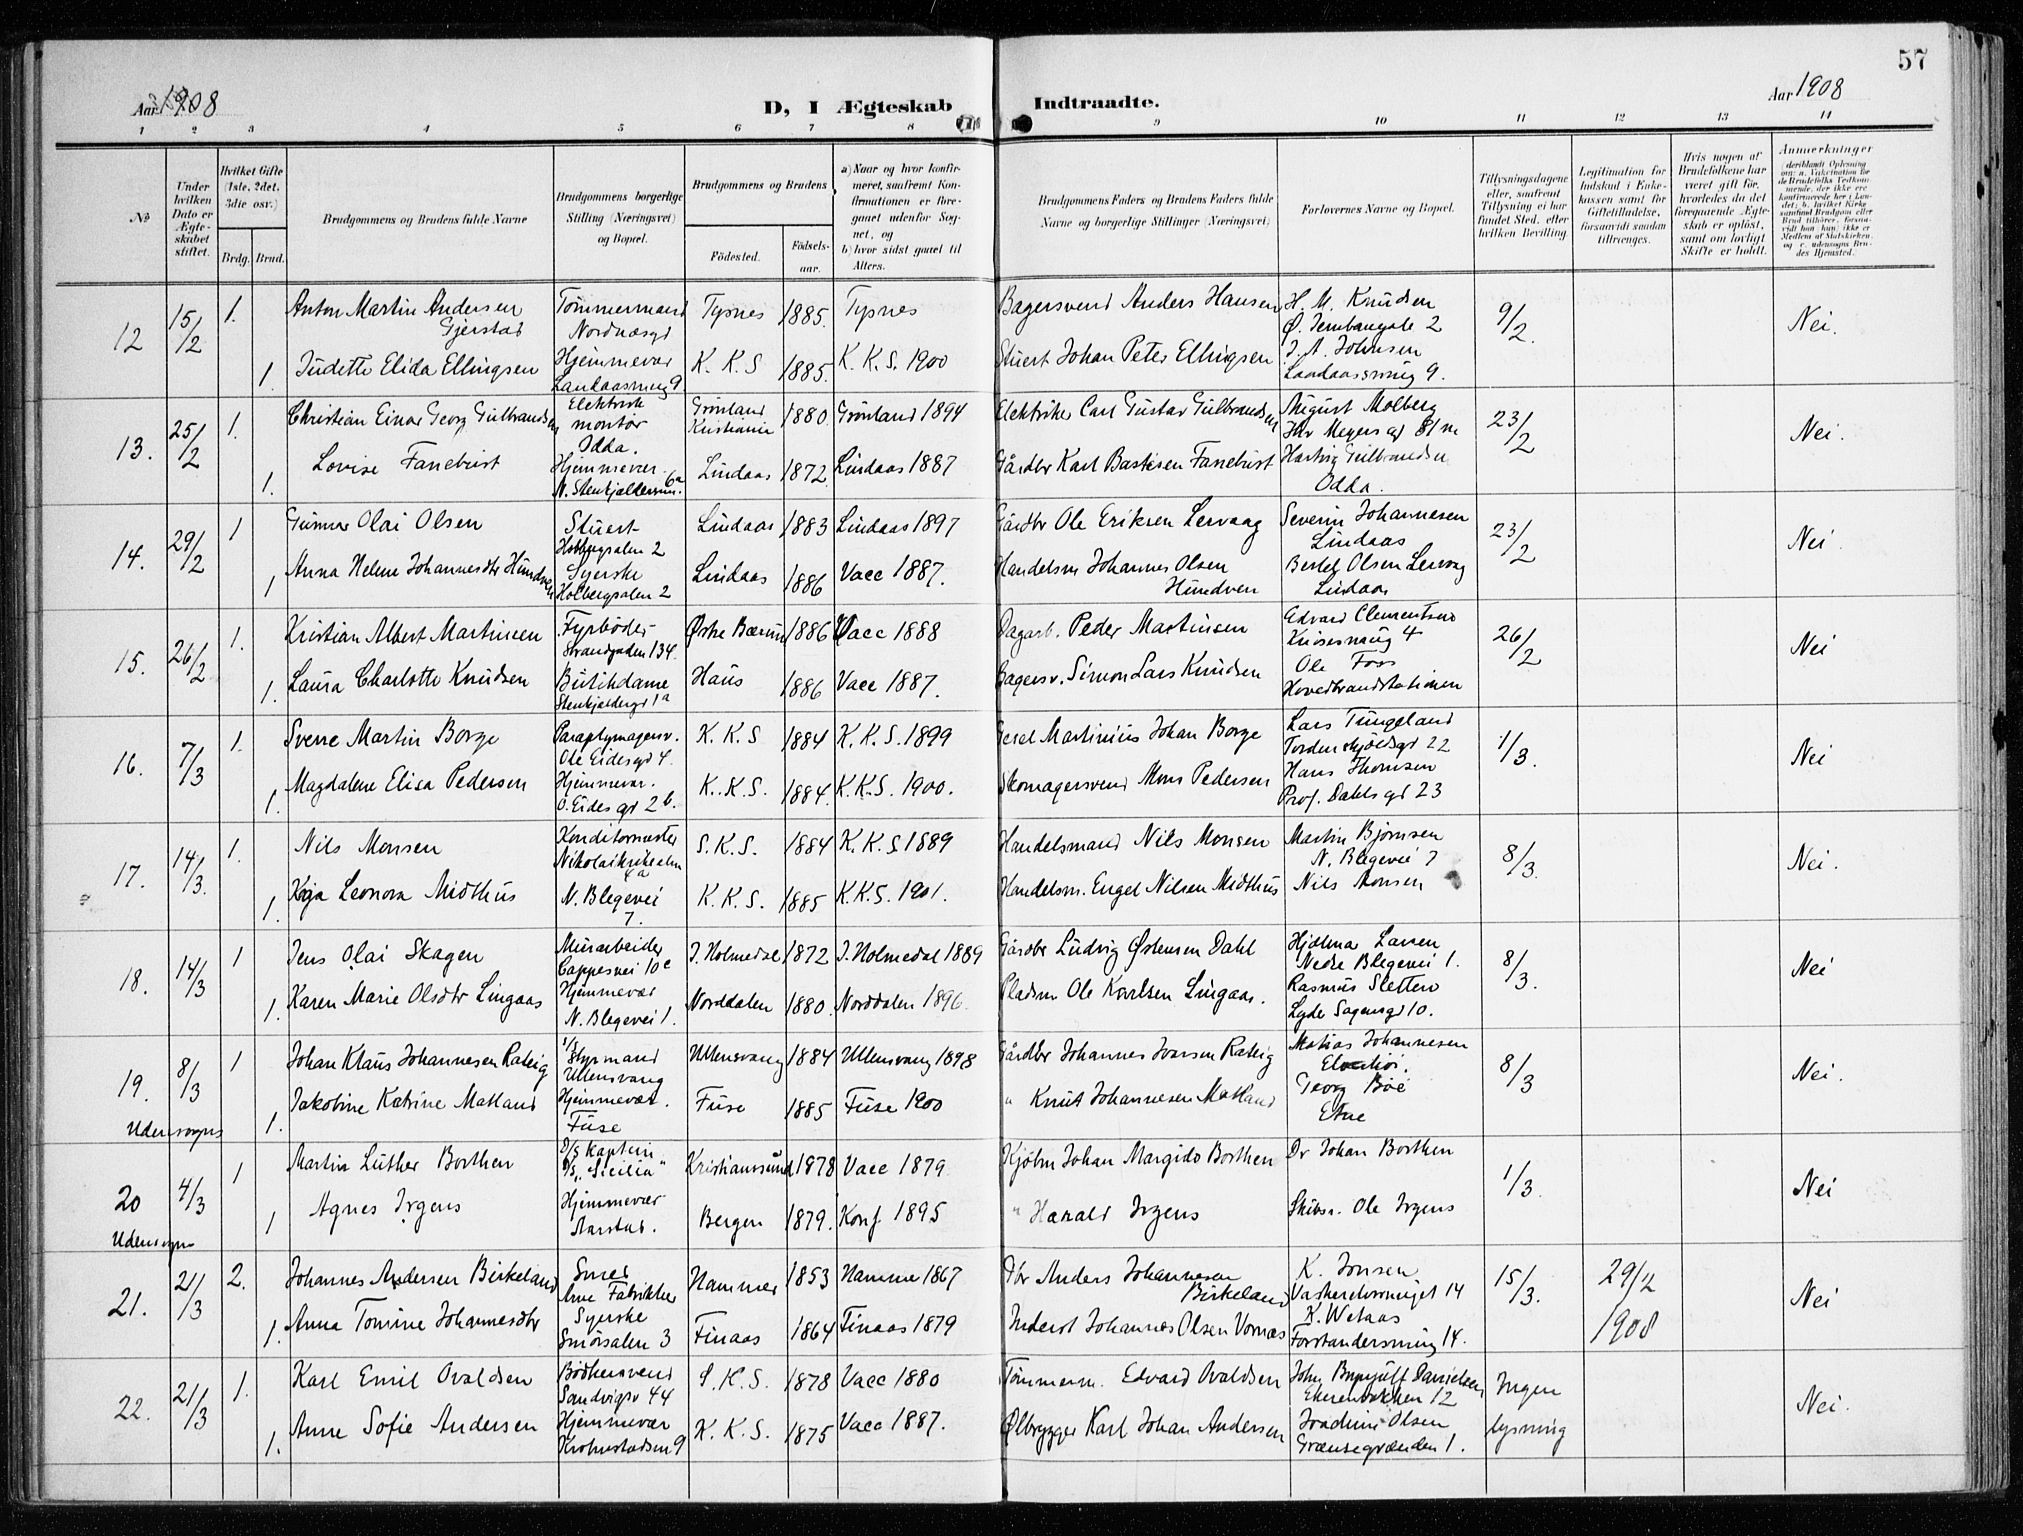 57
Aar 1908
D, I Ægteskab Indtraadte.
Aar 1908
1 2 3 4 5 6 7 8 9 10 11 12 13 14
№
Under hvilken Dato er Ægteskabet stiftet.
Hvilket Gifte (1ste, 2det, 3die osv.)
Brdg. Brud.
Brudgommens og Brudens fulde Navne
Brudgommens borgerlige Stilling (Næringsvei) og Bopæl.
Brudgommens og Brudens
Födested. Födselsaar.
a) Naar og hvor konfirmeret, saafremt Konfirmationen er foregaaet udenfor Sognet, og
b) hvor sidst gaaet til Alters.
Brudgommens Faders og Brudens Faders fulde Navne og borgerlige Stillinger (Næringsvei)
Forlovernes Navne og Bopæl.
Tillysningsdagene eller, saafremt Tillysning ei har fundet Sted, efter hvilken Bevilling
Legitimation for Indskud i Enkekassen samt for Giftetilladelse, forsaavidt saadan tiltrenges.
Hvis nogen af Brudefolkene har været gift för, hvorledes da det foregaaende Ægteskab er oplöst, samt om lovligt Skifte er holdt.
Anmerkninger
12 15/2 1. Anton Martin Andersen Gjerstad Tømmermand Nordnæsgd Tysnes 1885. Tysnes Bagersvend Anders Hansen H. M. Knudsen 9/2. Nei.
1. Judette Elida Ellingsen Hjemmevær K. K. S 1885. K. K. S. 1900 Stuert Johan Peter Ellingsen J. A. Johnsen
13. 25/2 1. Christian Einar Georg Gulbrandsen Elektrisk montør Odda. Grønland Kristiania 1880. Grønland 1894 Elektriker Carl Gustav Gulbrandsen August Molberg 23/2 Nei.
1. Lovise Fanebust Hjemmevær. Lindaas 1872. Lindaas 1887 Gårdbr Karl Bastesen Fanebust Hartvig Gulbrandsen Odda.
14. 29/2 1 Gunnar Olai Olsen Stuert Lindaas 1883 Lindaas 1897 Gårdbr Ole Eriksen Lervaag Severin Johannesen Lindaas 23/2 Nei.
1 Anna Helene Johannesdtr Hundven Syerske Holbergsalen 2 Lindaas 1886 Vacc 1887. Handelsm Johannes Olsen Hundven Olsen Lindaas
15. 26/2 1. Kristian Albert Martinsen Fyrbøder Strandgaden 134. Østre Bærum 1886 Vacc 1888 Dagarb. Peder Martinsen Edvard Clementsen 4 26/2 Nei
1. Laura Charlotte Knudsen Butikdame Haus 1886 Vacc 1887. Bagersv. Simon Lars Knudsen Ole Foss Hovedbrandstationen
16. 7/3 1. Sverre Martin Borge Paraplymagersv. Ole Eidesgd 4. K. K. S 1884 K. K. S. 1899 Martinius Johan Borge Lars Tungeland Tordenskjoldsgd 22 1/3. Nei
1. Magdalene Elisa Pedersen Hjemmevær. O. Eides gd 2b. K. K. S. 1884. K.K.S. 1900. Skomagersvend Mons Pedersen Hans Thomsen Prof. Dahls gd 23
17. 14/3. 1. Nils Monsen Konditormester S. K. S. 1884 K. K. S. 1889 Handelsmand Nils Monsen Martin Bjørnsen N. Blegevei 7 8/3. Nei.
1. Kaja Leonora Midthus N. Blegevei 7. K. K. S. 1885 K.K.S. 1901. Handelsm. Engel Nilsen Midthus Nils Monsen
18. 14/3 1 Jens Olai Skagen Murarbeider Cappesvei 10c I. Holmedal 1872 I. Holmedal 1889 Gårdbr Ludvig Østensen Dahl Hjalmar Larsen Nedre Blegevei 1. 8/3. Nei
1. Karen Marie Olsdtr Lingaas Hjemmevær N. Blegevei 1. Norddalen 1880. Norddalen 1896. Pladsm Ole Karlsen Lingaas. Rasmus Sletten Lyder Sagensgd 10.
19. 8/3 1 Johan Klaus Johannesen Styrmand Ullensvang Ullensvang 1884 Ullensvang 1898 Gårdbr Johannes Ivarsen Matias Johannesen 8/3 Nei.
1. Jakobine Katrine Matland Hjemmevær. Fuse Fuse 1885 Fuse 1900 " Knut Johannesen Matland Georg Bøe Etne
Udensogns
20 4/3 1 Martin Luther Borthen Kaptein D/S „Sicilia" Kristianssund 1878 Vacc 1879. Kjøbm Johan Margido Borthen Dr Johan Borthen 1/3. Nei
1 Agnes Irgens Hjemmevær Aarstad. Bergen 1879. Konf 1895 " Harald Irgens Skibsr. Ole Irgens
Udensogns
21. 21/3 2. Johannes Andersen Birkeland Smed Arne Fabrikker Hammer 1853 Hammer 1867 Gbr Anders Johannesen Birkeland K. Jonsen 14 15/3. 29/2 1908 Nei
1. Anna Tomine Johannesdtr Syerske Smørsalen 3 Finaas 1864 Finaas 1879 Inderst Johannes Olsen Vornæs K. Wetaas Forstandersmug 14.
22. 21/3 1. Karl Emil Ovaldsen Bødkersvend Sandvigsv 44 S. K. S. 1878 Vacc 1880 Tømmerm. Edvard Ovaldsen John Brynjulf Danielsen 12 Ingen lysning Nei.
1. Anne Sofie Andersen Hjemmevær 9 K. K. S. 1875 Vacc 1887. Ølbrygger Karl Johan Andersen Joachim Olsen Grænsegrænden 1.